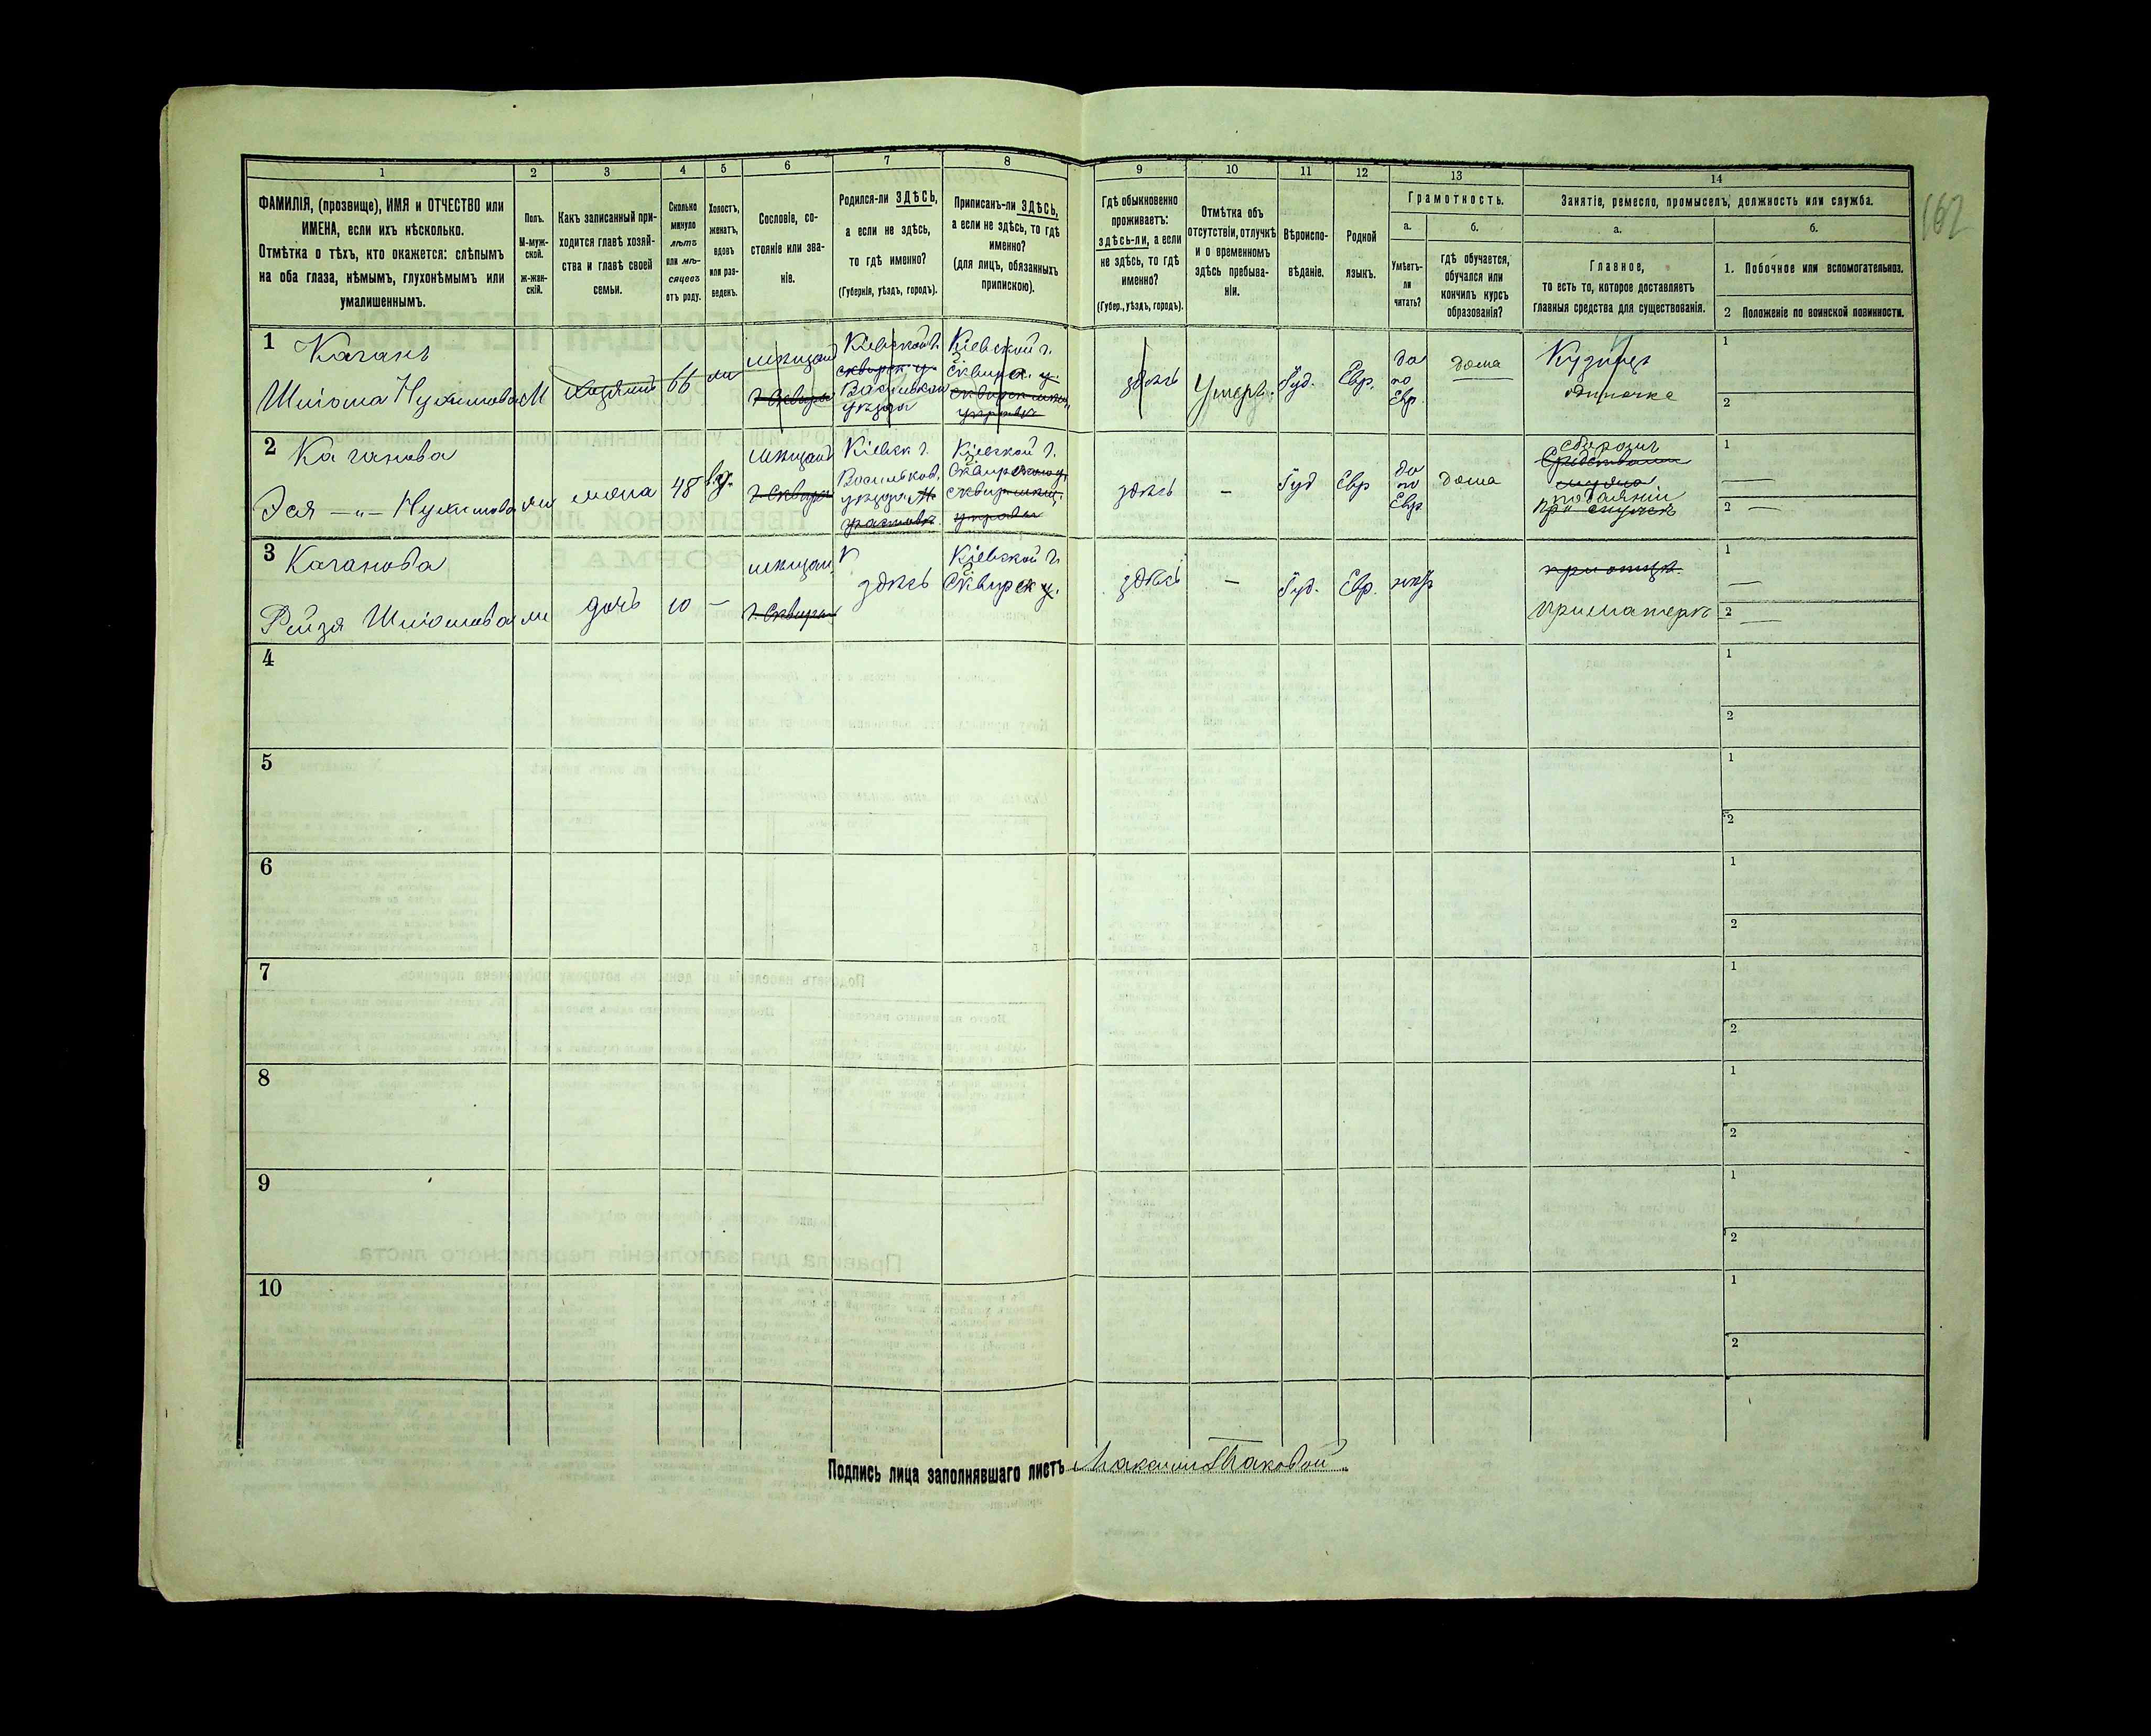 1 2 3 4 5 6 7 8 9 10 11 12 13 14
ФАМИЛІЯ, (прозвище), ИМЯ и ОТЧЕСТВО или
ИМЕНА, если ихъ нѣсколько.
Отмѣтка о тѣхъ, кто окажется: слѣпымъ
на оба глаза, нѣмымъ, глухонѣмымъ или
умалишеннымъ.
Полъ.
М-муж-
ской.
Ж-жен-
скій.
Какъ записанный при-
ходится главѣ хозяй-
ства и главѣ своей
семьи.
Сколько
минуло
лѣтъ
или мѣ-
сяцевъ
отъ роду.
Холостъ,
женатъ,
вдовъ
или раз-
веденъ.
Сословіе, со-
стояніе или зва-
ніе.
Родился-ли ЗДѢСЬ,
а если не здѣсь,
то гдѣ именно?
(Губернія, уѣздъ, городъ).
Приписанъ-ли ЗДѢСЬ,
а если не здѣсь, то гдѣ
именно?
(для лицъ, обязанныхъ
припискою).
Гдѣ обыкновенно
проживаетъ:
здѣсь-ли, а если
не здѣсь, то гдѣ
именно?
(Губер., уѣздъ, городъ).
Отмѣтка объ
отсутствіи, отлучкѣ
и о временномъ
здѣсь пребыва-
ніи.
Вѣроиспо-
вѣданіе.
Родной
языкъ.
Грамотность.
а.
Умѣетъ-
ли
читать?
б.
гдѣ обучается,
обучался или
кончилъ курсъ
образованія?
Занятіе, ремесло, промыселъ, должность или служба.
а.
Главное,
то есть то, которое доставляетъ
главныя средства для существованія.
б.
1. Побочное или вспомогательное.
2 Положеніе по воинской повинности.
162
1
Каганъ
М
66
мѣщан
Кіевской г.
Василькои
уѣзда
Кіевской г.
Сквирск. у.
здѣсь
Умеръ.
Іуд.
Евр.
да
по
Евр.
дома
Кузнецъ
одиночка
1
2
2
Каганова
жена
48
мѣщан
г. Сквира
Кіевск г.
Васильков.
уѣзда
Кіевской г.
здѣсь
–
Іуд
Евр
да
по
Евр.
дома
1
2
3
Каганова
дочь
10
–
мѣщан.
г. Сквира
здѣсь
Кіевской г.
Сквирск у.
здѣсь
–
Іуд.
Евр.
при матери
1
2
4
1
2
5
1
2
6
1
2
7
1
2
8
1
2
9
1
2
10
1
2
Подпись лица заполнявшаго листъ